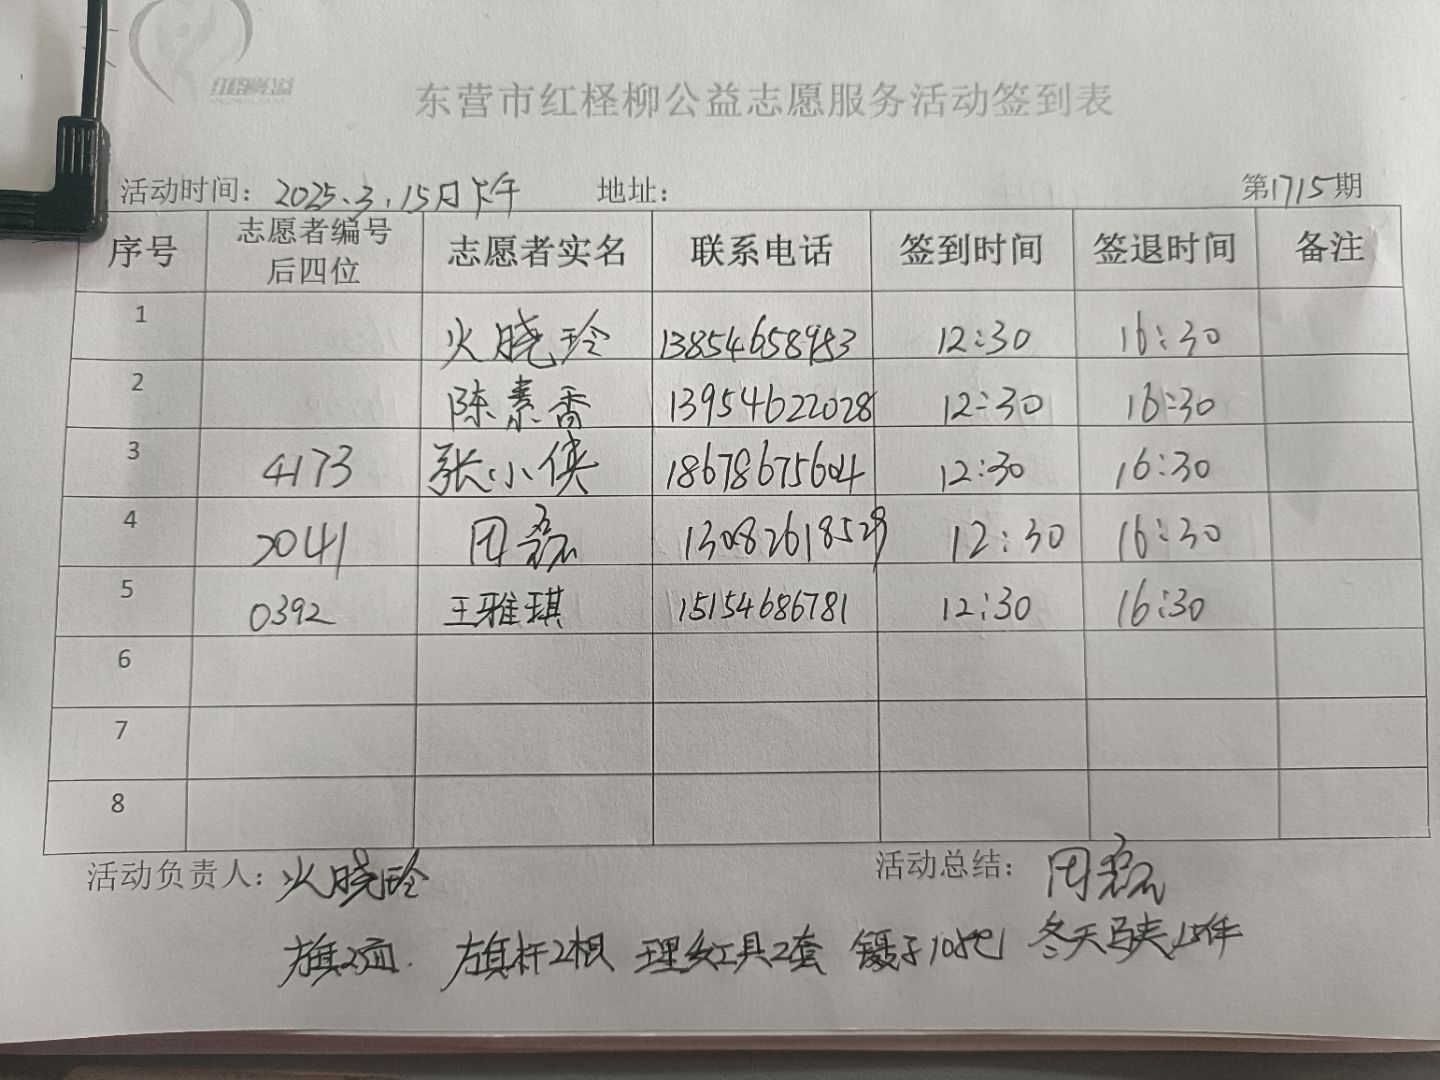 东营市红柽柳公益志愿服务活动签到表
活动时间：2025.3.15日下午 地址： 第1715期
序号 志愿者编号后四位 志愿者实名 联系电话 签到时间 签退时间 备注
1 火晓玲 13854658983 12:30 16:30
2 陈素香 13954622028 12:30 16:30
3 4173 张小侠 18678675604 12:30 16:30
4 2041 周磊 13082618529 12:30 16:30
5 0392 王雅琪 15154686781 12:30 16:30
6
7
8
活动负责人：火晓玲 活动总结：周磊
旗2面. 旗杆2根 理发工具2套 镊子10把 冬天马夹15件